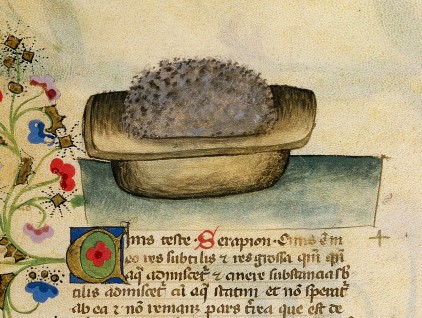 Cinis teste Serapion. Cinis eni
eo res subtilis ⁊ res grossa qm̄ qn̄
aq̄ admiscet᷑ ⁊ cinere substancia sb
tilis admiscet᷑ cū aq̄ statim et nō sperat᷑
ab ea ⁊ nō remanꝫ pars t̄rea que est de